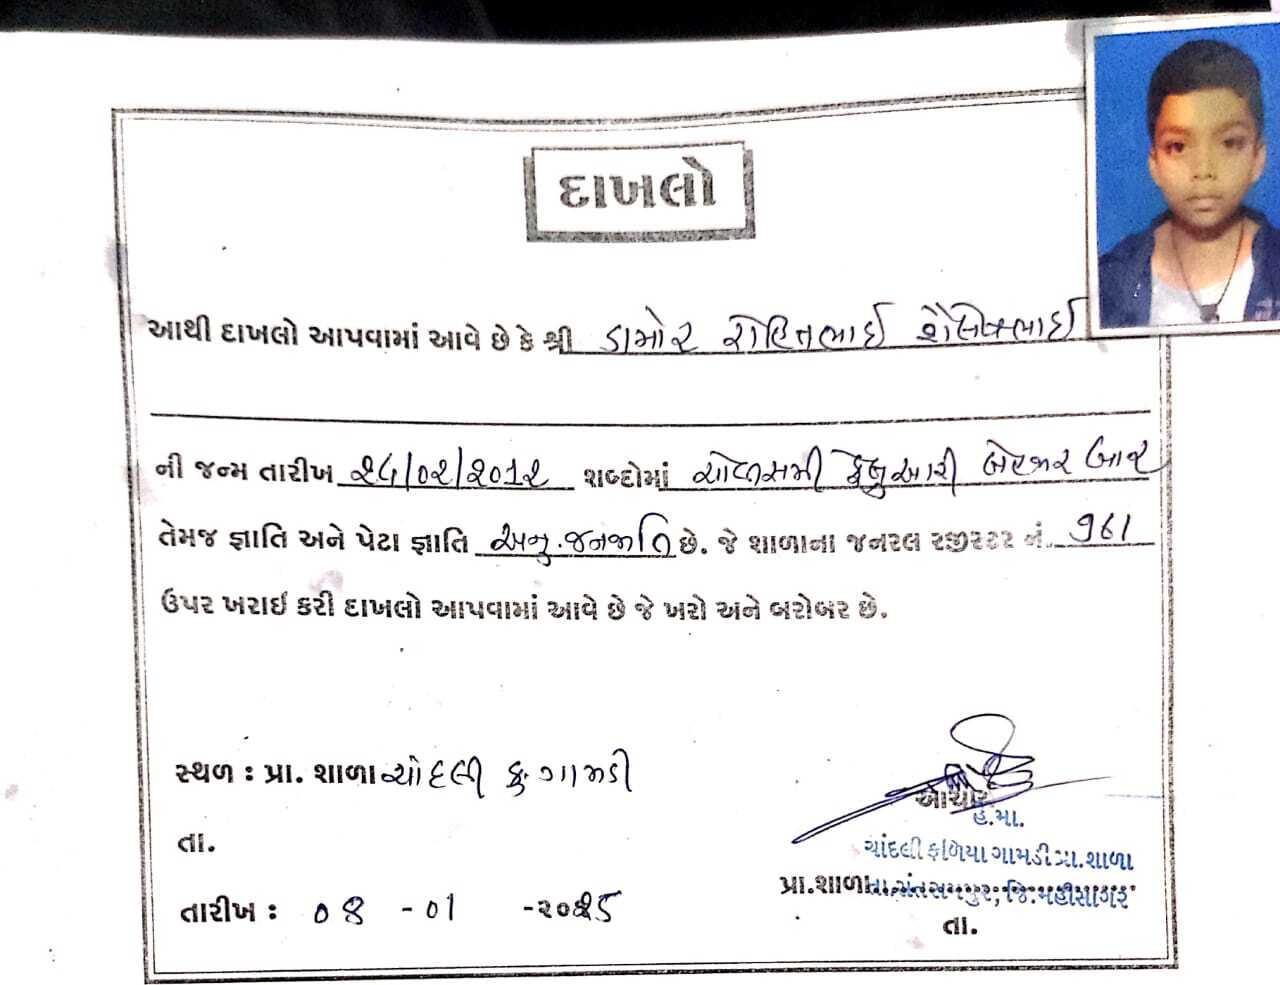 દાખલો
આથી દાખલો આપવામાં આવે છે કે શ્રી ડામોર રોહિતભાઈ શૈલેષભાઈ
ની જન્મ તારીખ ૨૮/૦૨/૨૦૧૨ શબ્દોમાં ફેબ્રુઆરી બેહજાર બાર
તેમજ જ્ઞાતિ અને પેટા જ્ઞાતિ અનુ.જનજાતિ છે. જે શાળાના જનરલ રજીસ્ટર નં. ૧૬૧
ઉપર ખરાઈ કરી દાખલો આપવામાં આવે છે જે ખરો અને બરોબર છે.
સ્થળ : પ્રા. શાળા ચાંદલી ફ. ગામડી
તા.
તારીખ : ૦૪ -૦૧ -૨૦૨૫
આચાર્ય
હ.મા.
ચાંદલી ફળિયા ગામડી પ્રા.શાળા
પ્રા.શાળા તા.સંતરામપુર, જિ.મહીસાગર
તા.